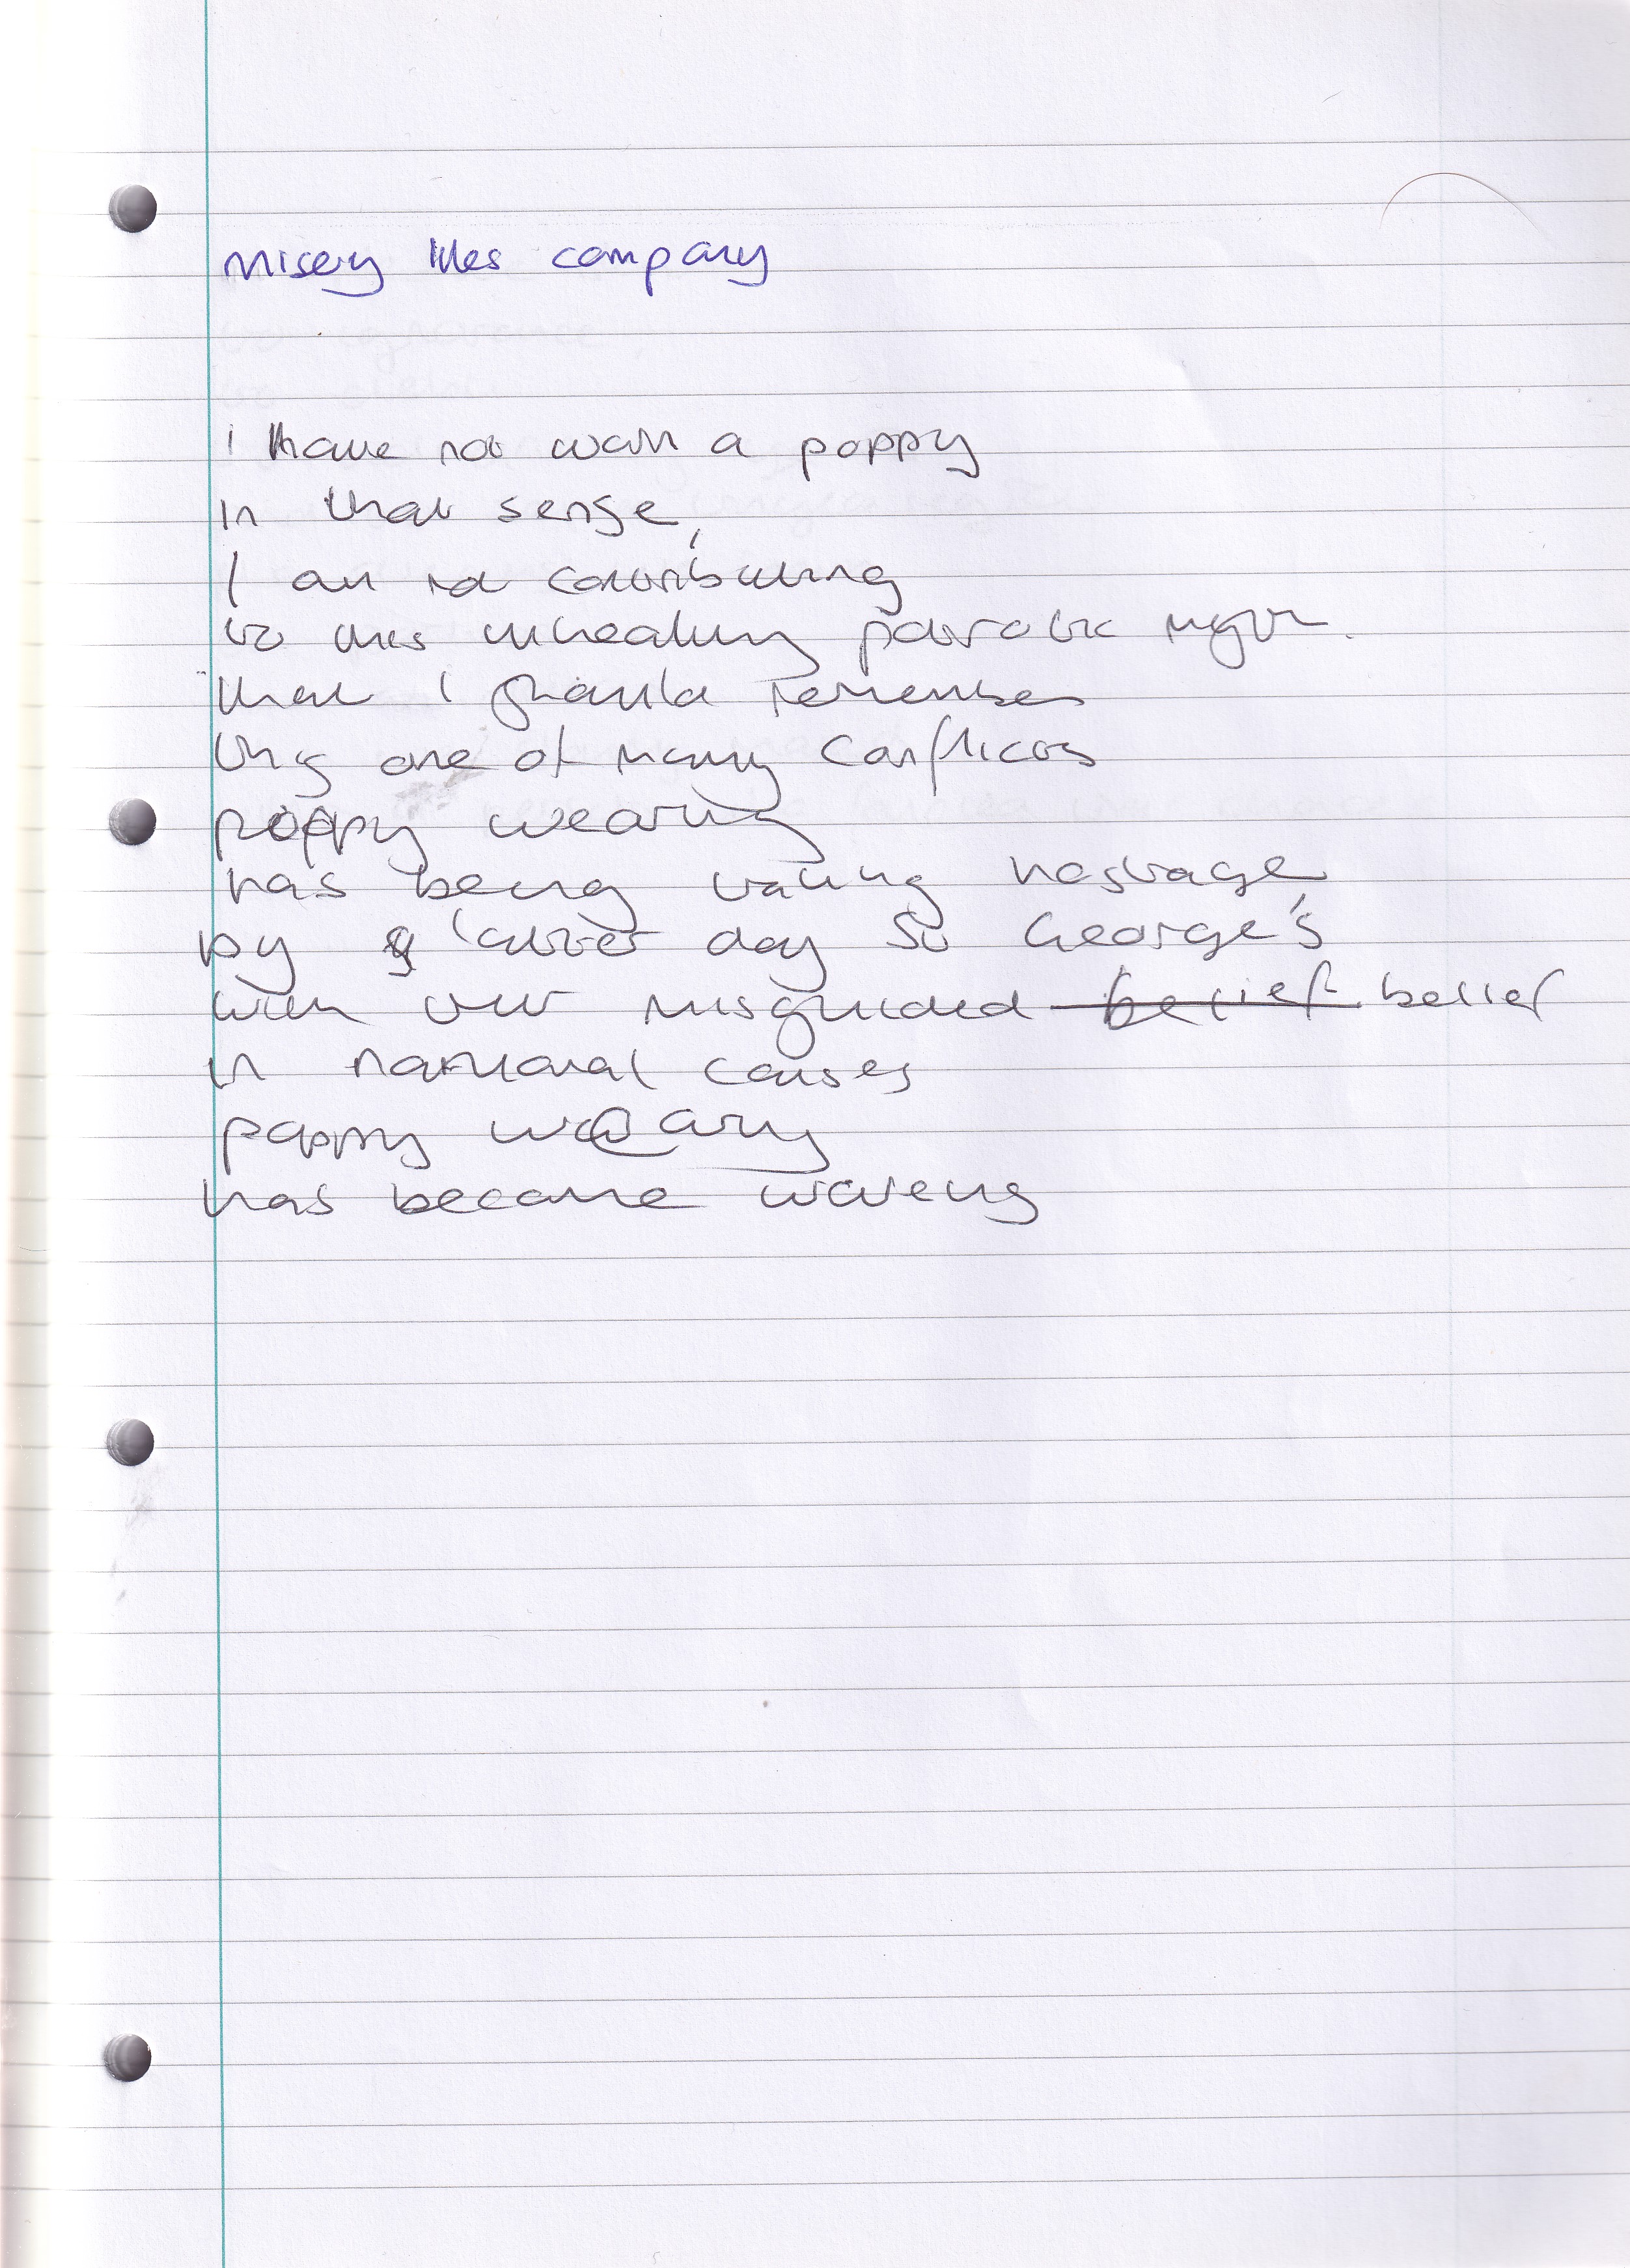 misery likes company
I have not worn a poppy
in that sense,
I am not contributing
to this unhealthy patriotic myth.
that I should remember
this one of many conflicts
poppy wearing
has being taking hostage,
by latter day St George's
with their misguided belief belief
in national causes
poppy wearing
has become